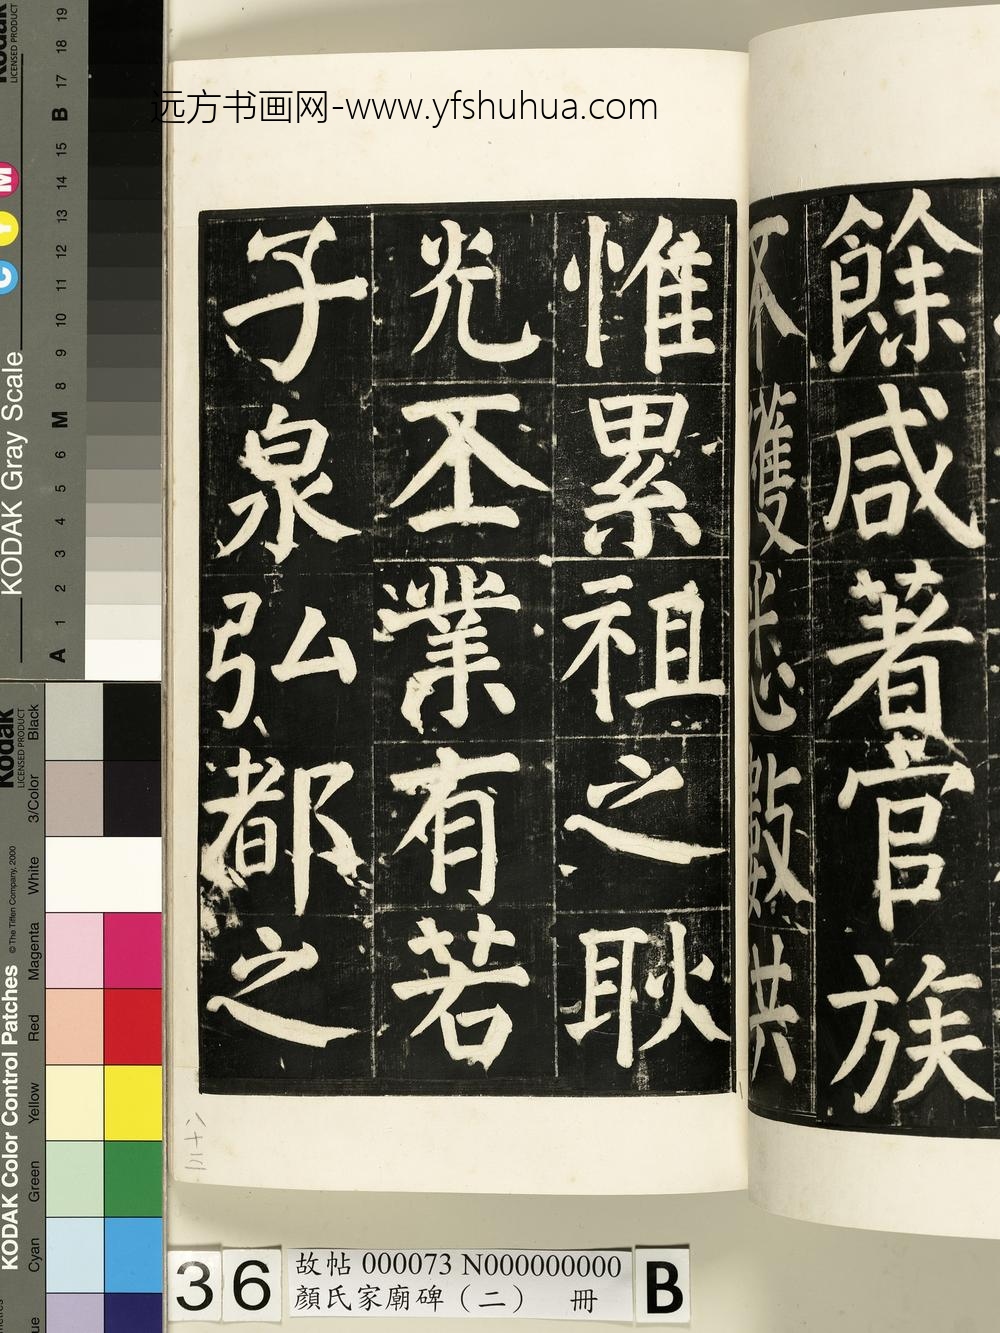 远方书画网-www.yfshuhua.com
餘咸著官族
不獲悉數共
惟累祖之耿
光丕業有若
子泉弘都之
KODAK Gray Scale
Kodak
LICENSED PRODUCT
C Y M
A 1 2 3 4 5 6 M 8 9 10 11 12 13 14 15 B 17 18 19
KODAK Color Control Patches
© The Tiffen Company, 2000
Kodak
LICENSED PRODUCT
Cyan Green Yellow Red Magenta White 3/Color Black
36
故帖 000073 N000000000
顏氏家廟碑（二） 冊
B